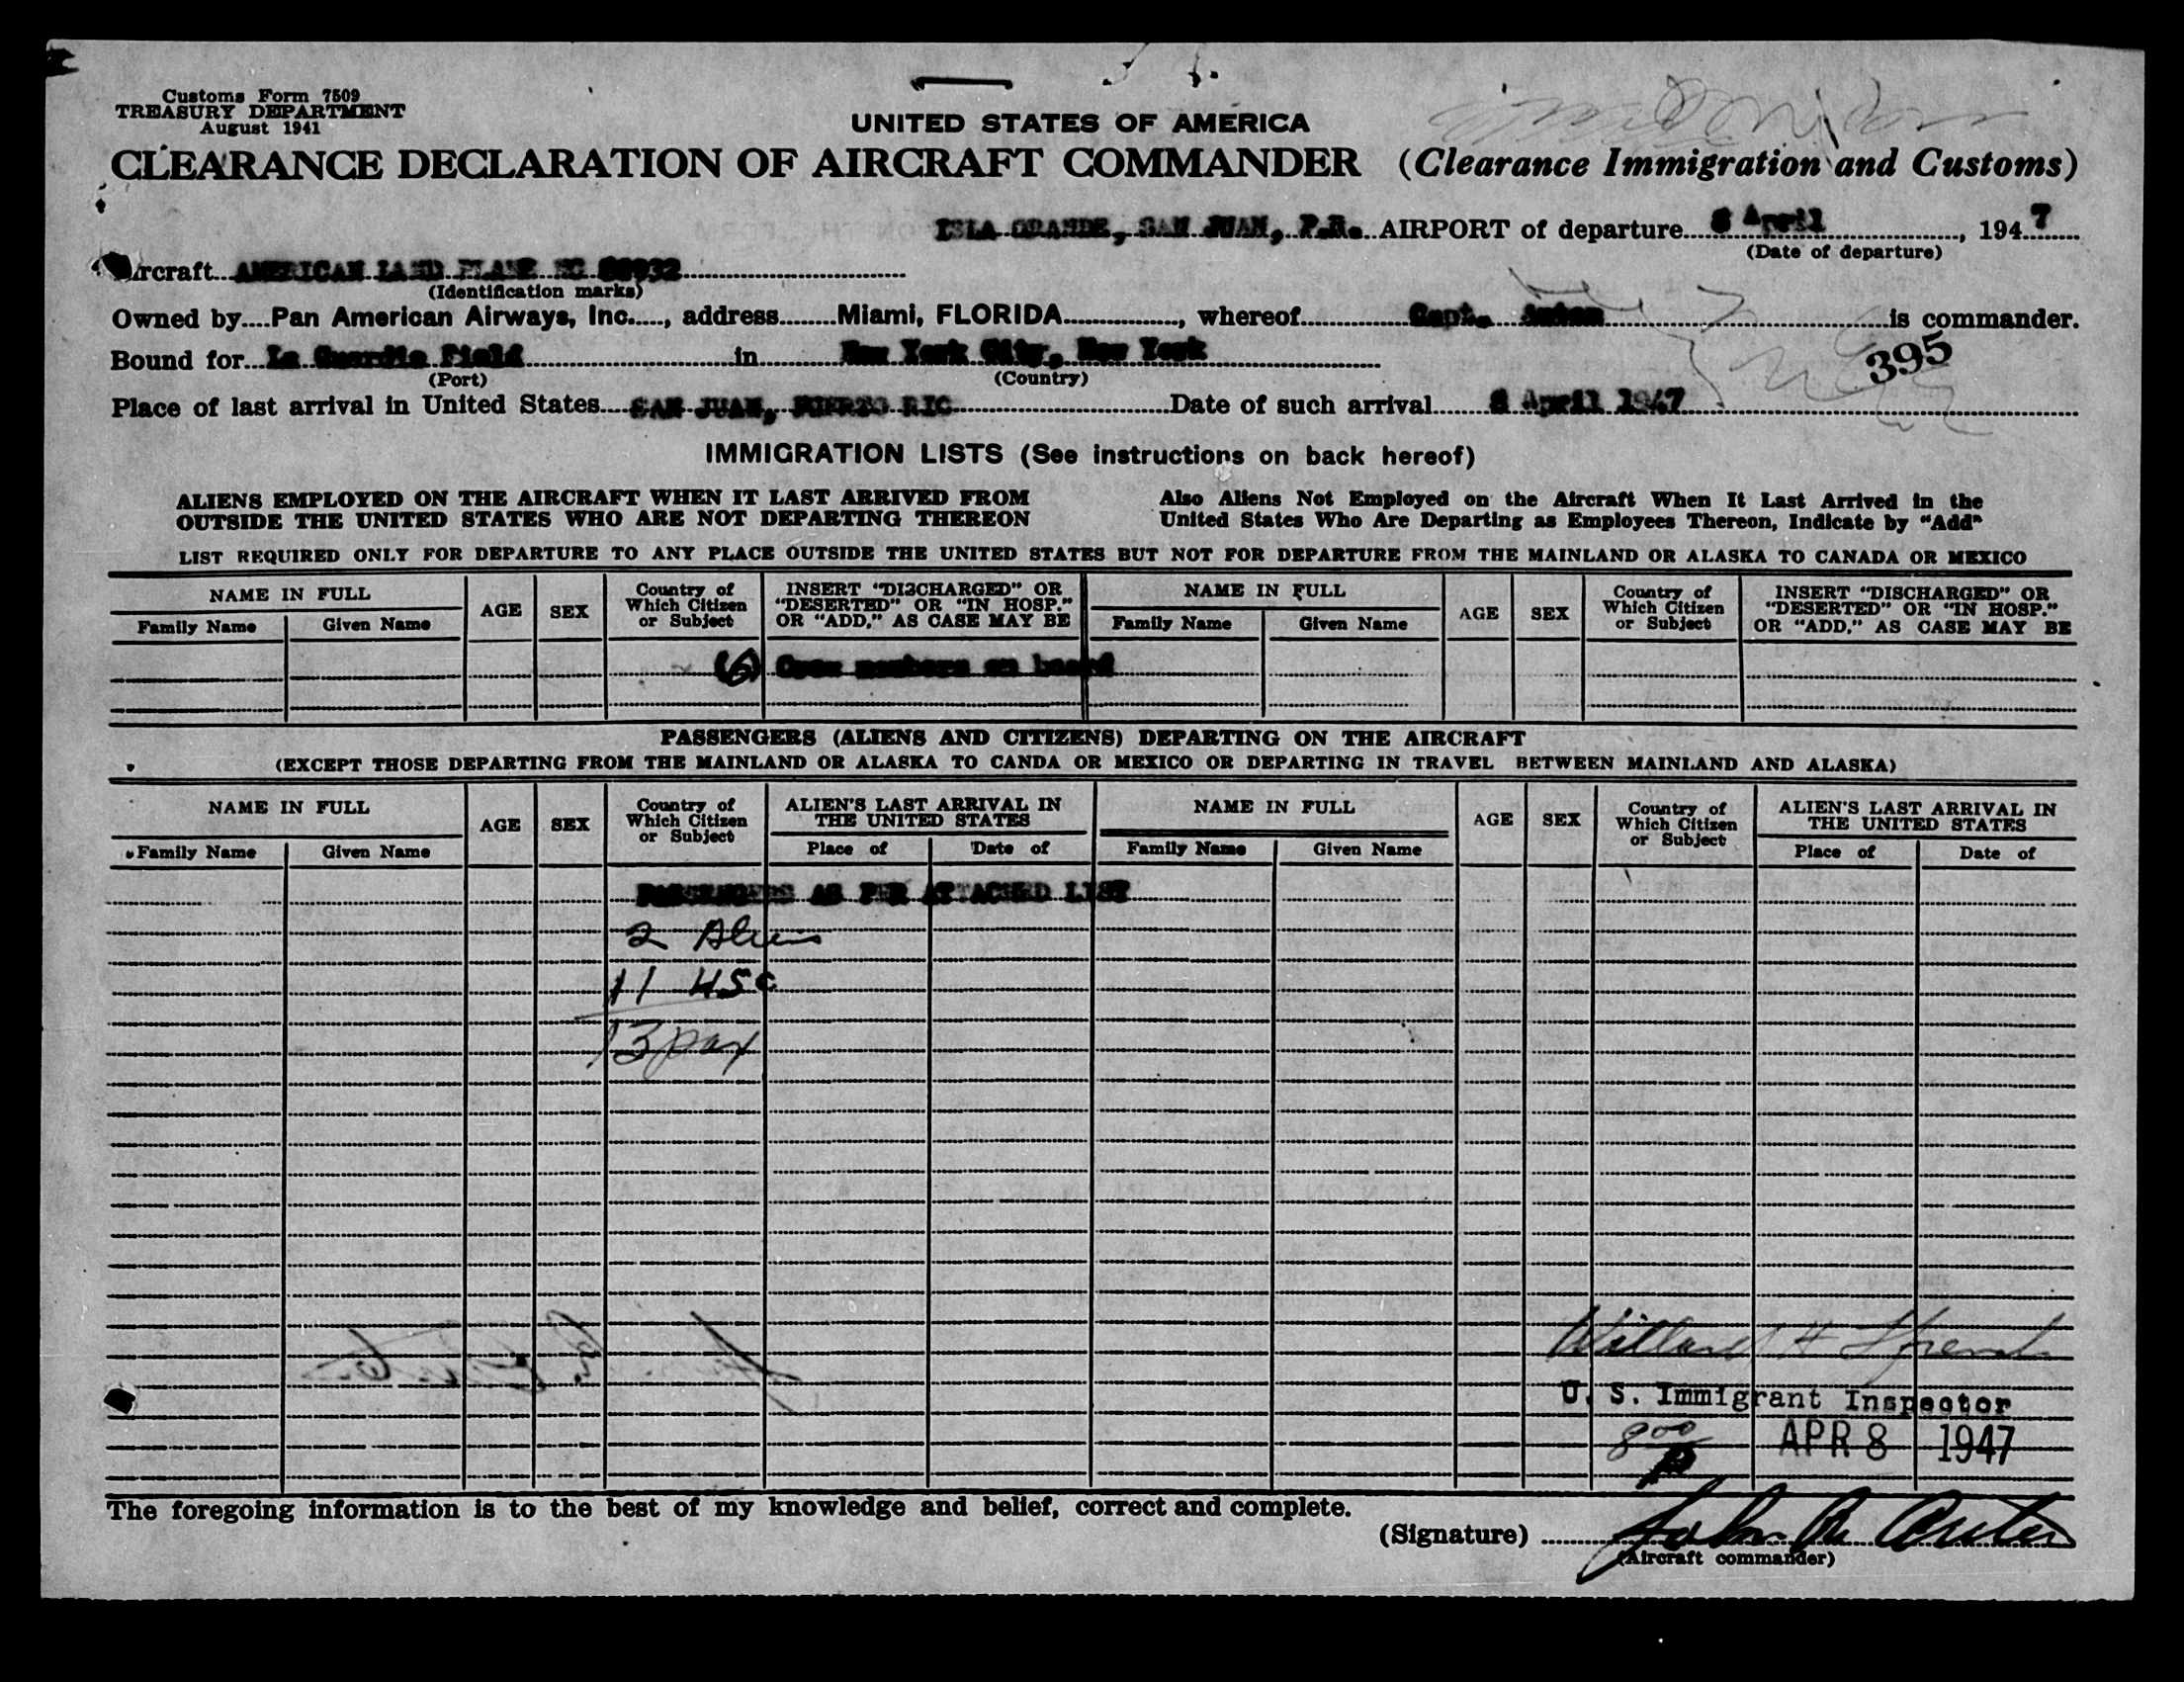 Customs Form 7509
TREASURY DEPARTMENT
August 1941
UNITED STATES OF AMERICA
CLEARANCE DECLARATION OF AIRCRAFT COMMANDER (Clearance Immigration and Customs)
ISLA GRANDE, SAN JUAN, P.R. AIRPORT of departure 8 April, 1947
(Date of departure)
Aircraft AMERICAN LAND PLANE NC
(Identification marks)
Owned by Pan American Airways, Inc., address Miami, FLORIDA, whereof Capt. is commander.
Bound for La Guardia Field in New York City, New York
(Port) (Country)
395
Place of last arrival in United States SAN JUAN, PUERTO RIC Date of such arrival 8 April 1947
IMMIGRATION LISTS (See instructions on back hereof)
ALIENS EMPLOYED ON THE AIRCRAFT WHEN IT LAST ARRIVED FROM Also Aliens Not Employed on the Aircraft When It Last Arrived in the
OUTSIDE THE UNITED STATES WHO ARE NOT DEPARTING THEREON United States Who Are Departing as Employees Thereon, Indicate by "Add"
LIST REQUIRED ONLY FOR DEPARTURE TO ANY PLACE OUTSIDE THE UNITED STATES BUT NOT FOR DEPARTURE FROM THE MAINLAND OR ALASKA TO CANADA OR MEXICO
NAME IN FULL AGE SEX Country of Which Citizen or Subject INSERT "DISCHARGED" OR "DESERTED" OR "IN HOSP." OR "ADD," AS CASE MAY BE NAME IN FULL AGE SEX Country of Which Citizen or Subject INSERT "DISCHARGED" OR "DESERTED" OR "IN HOSP." OR "ADD," AS CASE MAY BE
Family Name Given Name Family Name Given Name
(6) Crew members on board
PASSENGERS (ALIENS AND CITIZENS) DEPARTING ON THE AIRCRAFT
(EXCEPT THOSE DEPARTING FROM THE MAINLAND OR ALASKA TO CANDA OR MEXICO OR DEPARTING IN TRAVEL BETWEEN MAINLAND AND ALASKA)
NAME IN FULL AGE SEX Country of Which Citizen or Subject ALIEN'S LAST ARRIVAL IN THE UNITED STATES NAME IN FULL AGE SEX Country of Which Citizen or Subject ALIEN'S LAST ARRIVAL IN THE UNITED STATES
Family Name Given Name Place of Date of Family Name Given Name Place of Date of
PASSENGERS AS PER ATTACHED LIST
2 Aliens
11 USC
13 pax
Willard H
U. S. Immigrant Inspector
8 00 P APR 8 1947
The foregoing information is to the best of my knowledge and belief, correct and complete.
(Signature) John
(Aircraft commander)